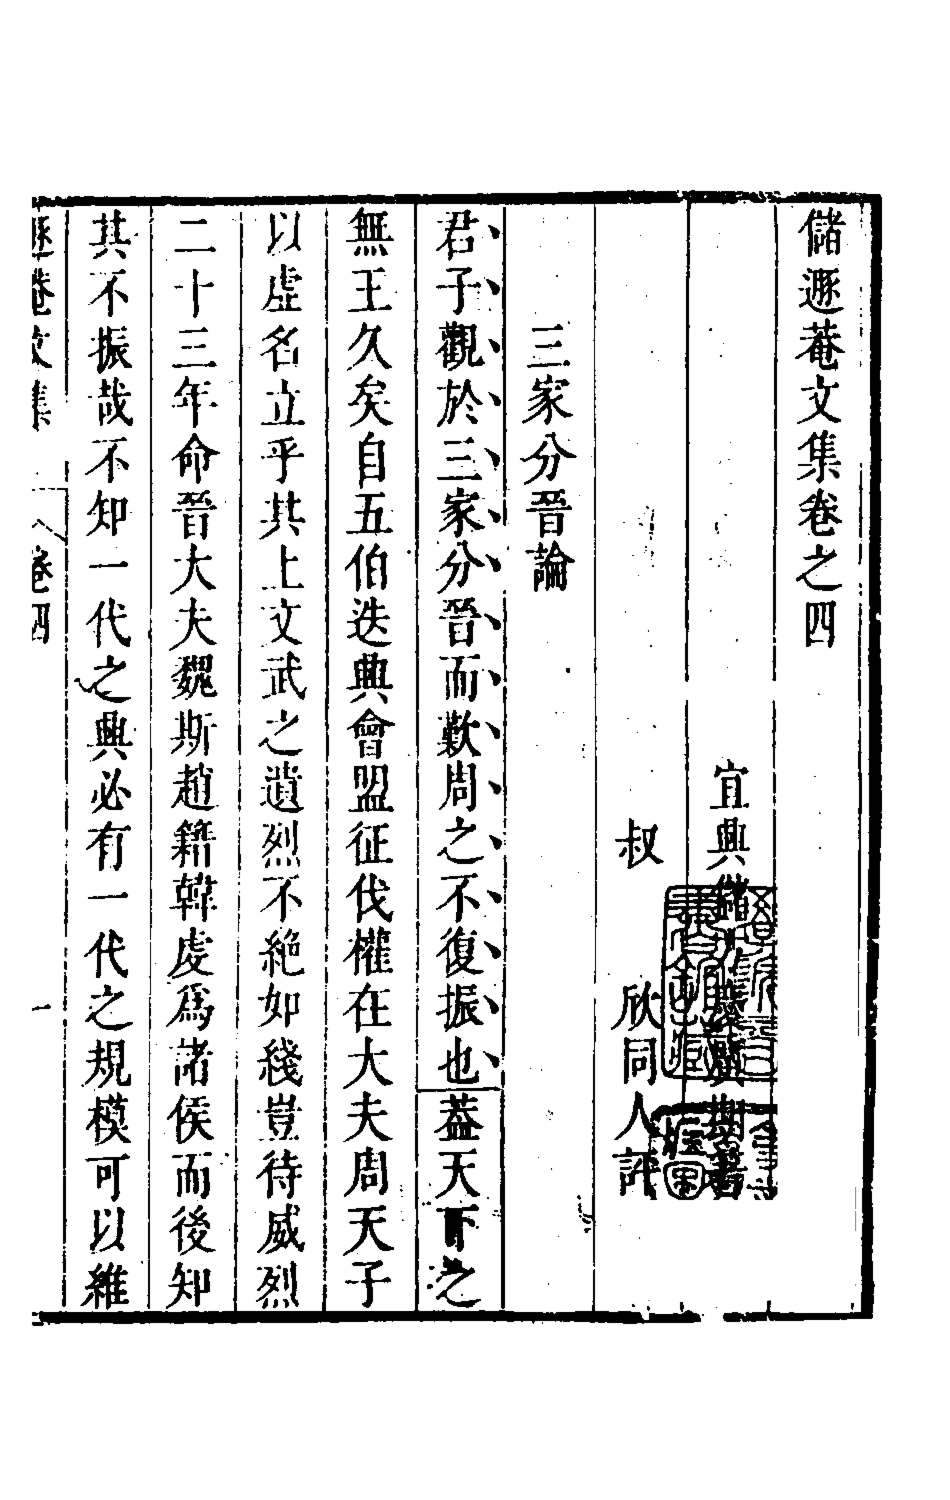 儲遯菴文集卷之四
宜興儲方慶廣期著
叔 欣同人評
三家分晉論
君子觀於三家分晉而歎周之不復振也蓋天下之
無王久矣自五伯迭興會盟征伐權在大夫周天子
以虛名立乎其上文武之遺烈不絶如綫豈待威烈
二十三年命晉大夫魏斯趙籍韓虔爲諸侯而後知
其不振哉不知一代之興必有一代之規模可以維
遯菴文集 卷四 一